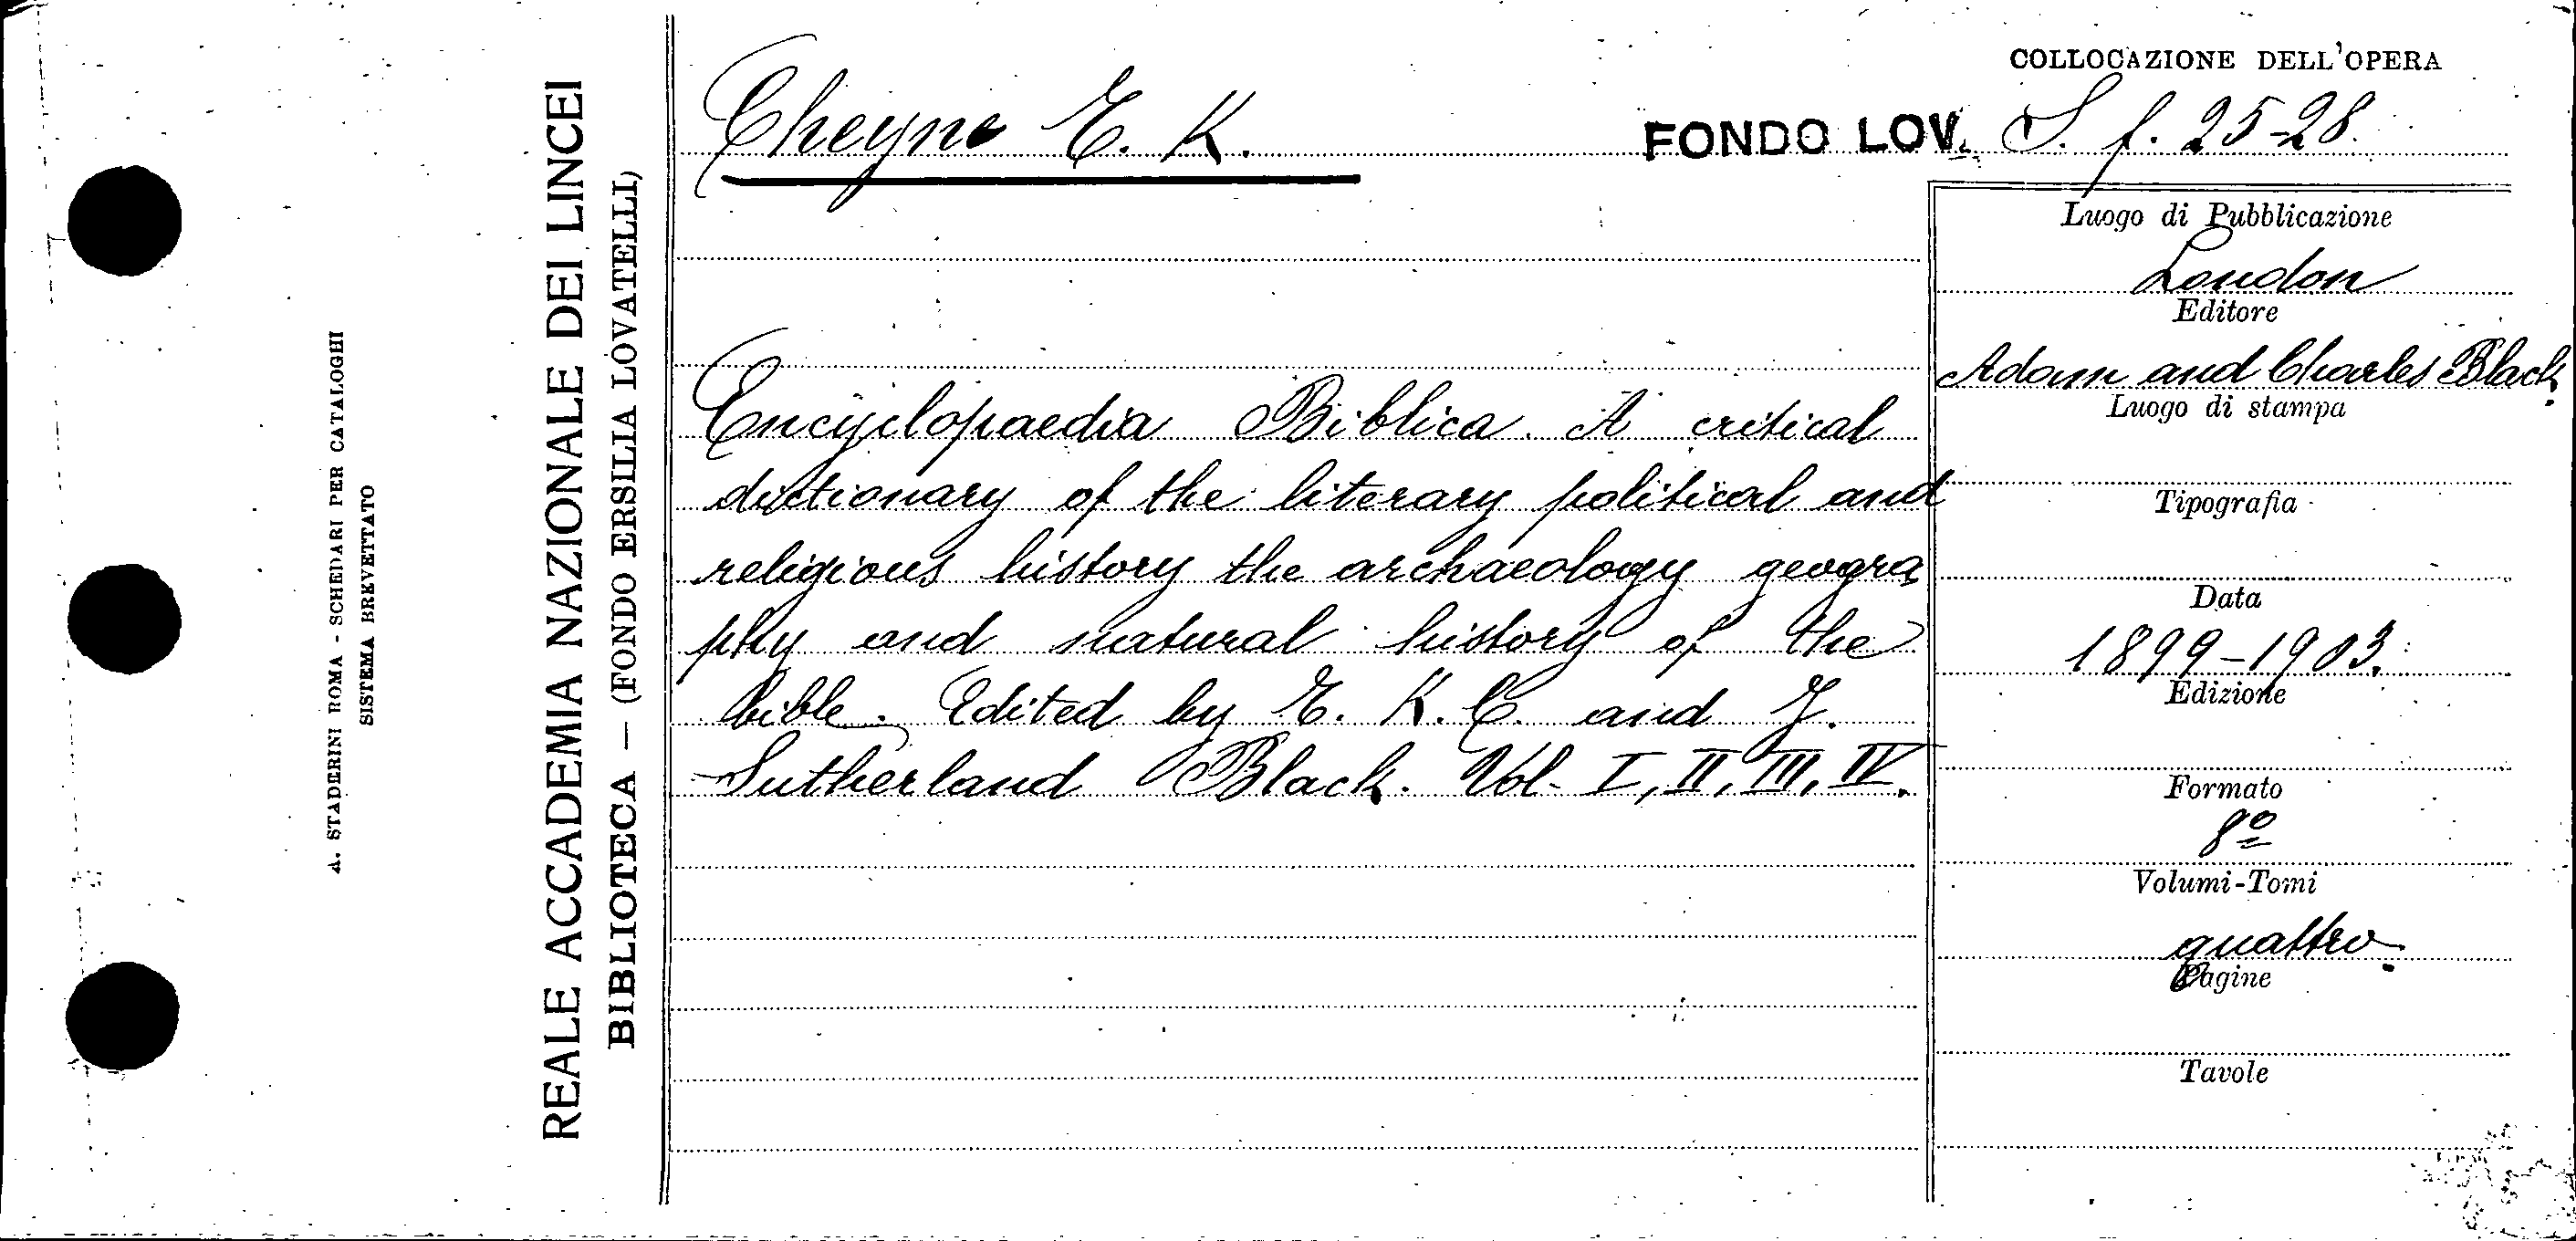 COLLOCAZIONE DELL'OPERA
Cheyne T. K.
FONDO LOV. S. f. 25-28.
Luogo di Pubblicazione
London
Editore
Adam and Charles Black.
Luogo di stampa
Tipografia
Data
1899-1903.
Edizione
Formato
8º
Volumi-Tomi
quattro.
Pagine
Tavole
Encyclopaedia Biblica. A critical
dictionary of the literary political and
religious history the archaeology geogra
phy and natural history of the
bible. Edited by T. K. C. and J.
Sutherland Black. Vol. I, II, III, IV.
REALE ACCADEMIA NAZIONALE DEI LINCEI
BIBLIOTECA — (FONDO ERSILIA LOVATELLI)
A. STADERINI ROMA - SCHEDARI PER CATALOGHI
SISTEMA BREVETTATO